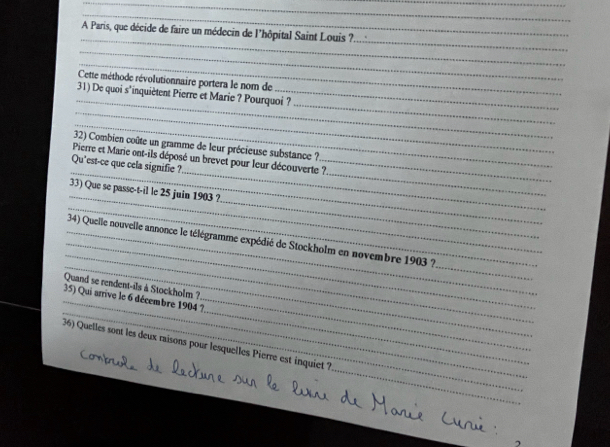 A Paris, que décide de faire un médecin de l'hôpital Saint Louis ?
Cette méthode révolutionnaire portera le nom de
31) De quoi s'inquiètent Pierre et Marie ? Pourquoi ?
32) Combien coûte un gramme de leur précieuse substance ?
Pierre et Marie ont-ils déposé un brevet pour leur découverte ?
Qu'est-ce que cela signifie ?
33) Que se passe-t-il le 25 juin 1903 ?
34) Quelle nouvelle annonce le télégramme expédié de Stockholm en novembre 1903 ?
Quand se rendent-ils à Stockholm ?
35) Qui arrive le 6 décembre 1904 ?
36) Quelles sont les deux raisons pour lesquelles Pierre est inquiet ?
Controle de lecture sur le livre de Marie Curie :